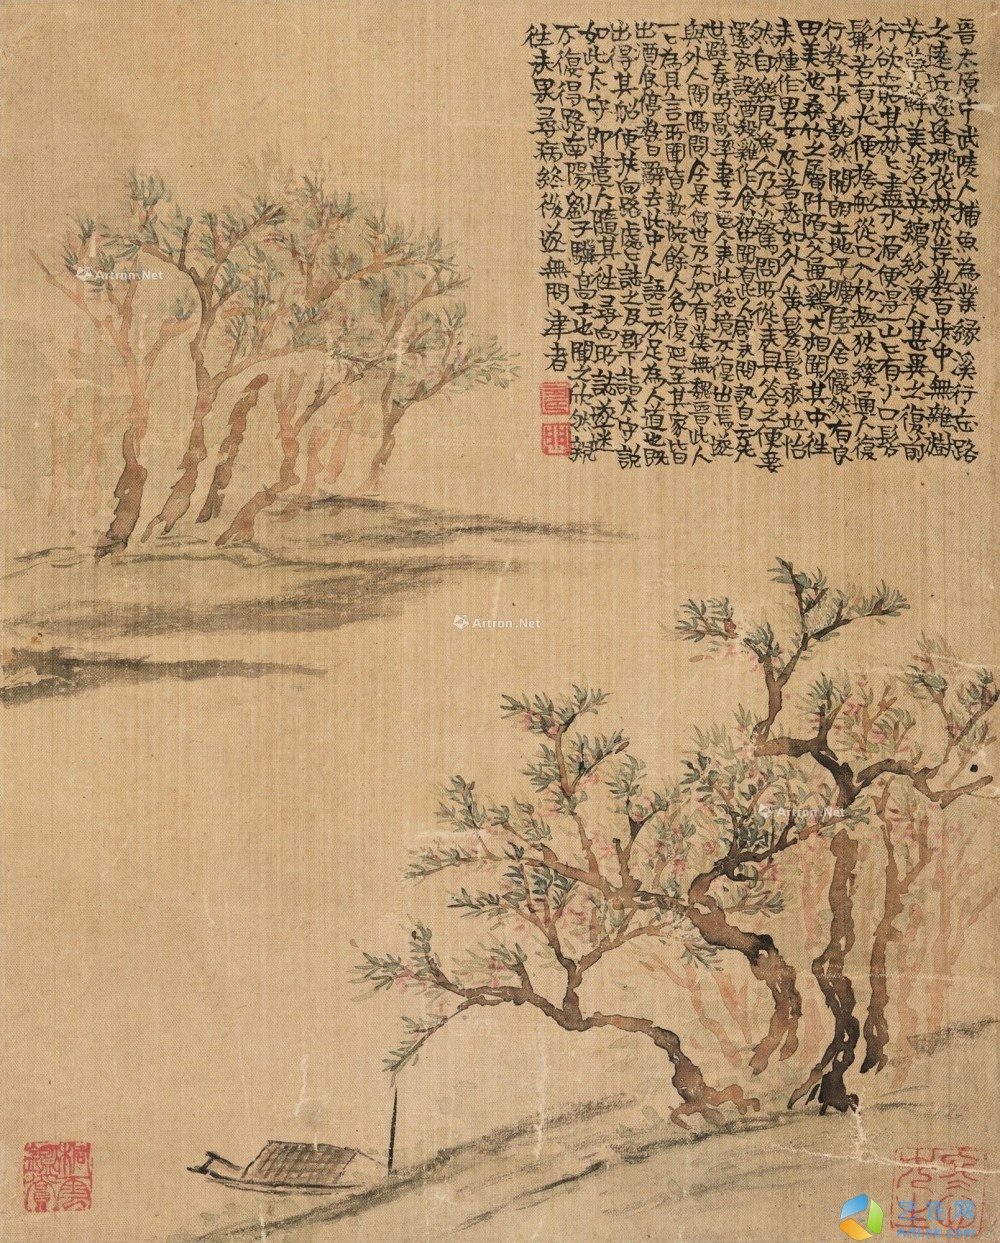 晉太原中武陵人捕魚為業緣溪行忘路
之遠近忽逢桃花林夾岸數百步中無雜樹
芳草鮮美落英繽紛漁人甚異之復前
行欲窮其林々盡水源便得山々有小口髣
髴若有光便捨船從口入初極狹纔通人復
行數十步豁然開朗土地平曠屋舍儼然有良
田美池桑竹之屬阡陌交通鷄犬相聞其中往
来種作男女衣著悉如外人黃髮髫垂並怡
然自樂見漁人乃大驚問所從来具答之便要
還家設酒殺雞作食村中聞有此人咸来問訊自云先
世避秦時亂率妻子邑人来此絕境不復出焉遂
與外人間隔問今是何世乃不知有漢無魏晉此人
一々為具言所聞皆歎惋餘人各復延至其家皆
出酒食停數日辭去此中人語云不足為人道也既
出得其船便扶向路處々誌之及郡下詣太守說
如此太守即遣人隨其往尋向所誌遂迷
不復得路南陽劉子驥高士也聞之欣然親
往未果尋病終後遂無問津者
Artron.Net
Artron.Net
Artron.Net